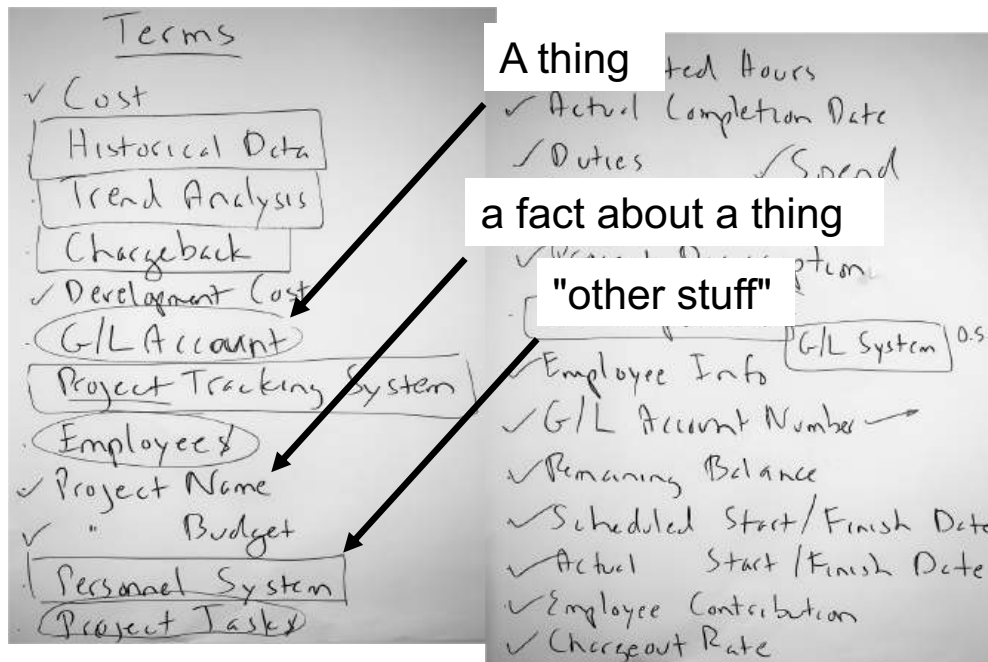 Terms
✓ Cost
Historical Data
Trend Analysis
Chargeback
✓ Development Cost
G/L Account
Project Tracking System
Employees
✓ Project Name
✓ " Budget
Personnel System
Project Tasks
A thing
a fact about a thing
"other stuff"
Hours
✓ Actual Completion Date
✓ Duties ✓ Spend
G/L System O.S.
✓ Employee Info
✓ G/L Account Number
✓ Remaining Balance
✓ Scheduled Start/Finish Date
✓ Actual Start/Finish Date
✓ Employee Contribution
✓ Chargeout Rate